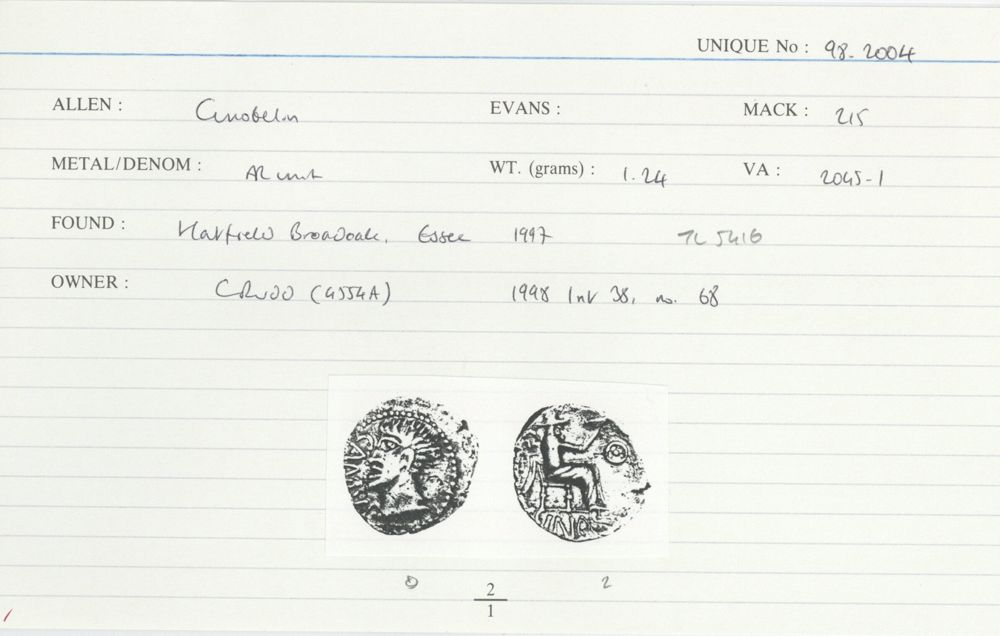 UNIQUE No : 98-2004
ALLEN : Cunobelin EVANS : MACK : 215
METAL/DENOM : AR unit WT. (grams) : 1.24 VA : 2045-1
FOUND : Hatfield Broadoak, Essex 1997 TL 5416
OWNER : (4554A) 1998 Inv 38, no. 68
2
1